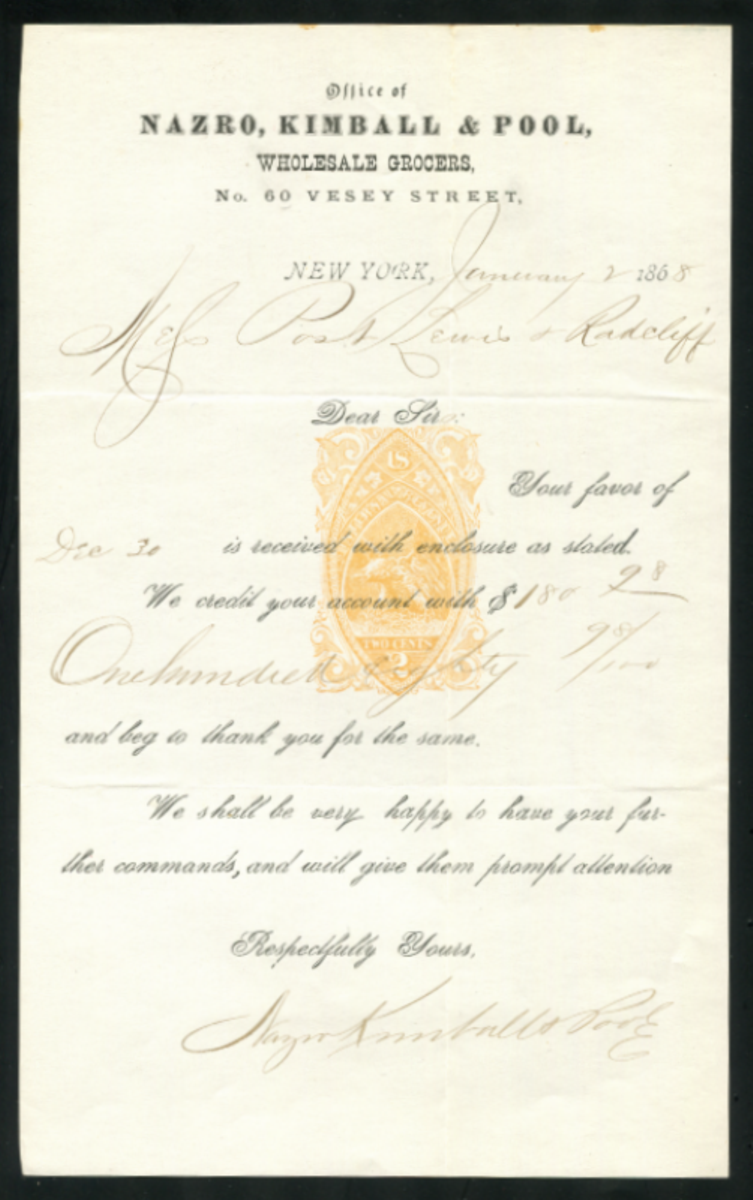 Office of
NAZRO, KIMBALL & POOL,
WHOLESALE GROCERS,
No. 60 VESEY STREET,
NEW YORK, January 2 1868
Mess Post Lewis & Radcliff
Dear Sirs:
Your favor of
Dec 30 is received with enclosure as stated.
We credit your account with $ 180 98
One hundred eighty 98/100
and beg to thank you for the same.
We shall be very happy to have your fur-
ther commands, and will give them prompt attention
Respectfully Yours,
Nazro Kimball & Pool
US
TWO CENTS
2